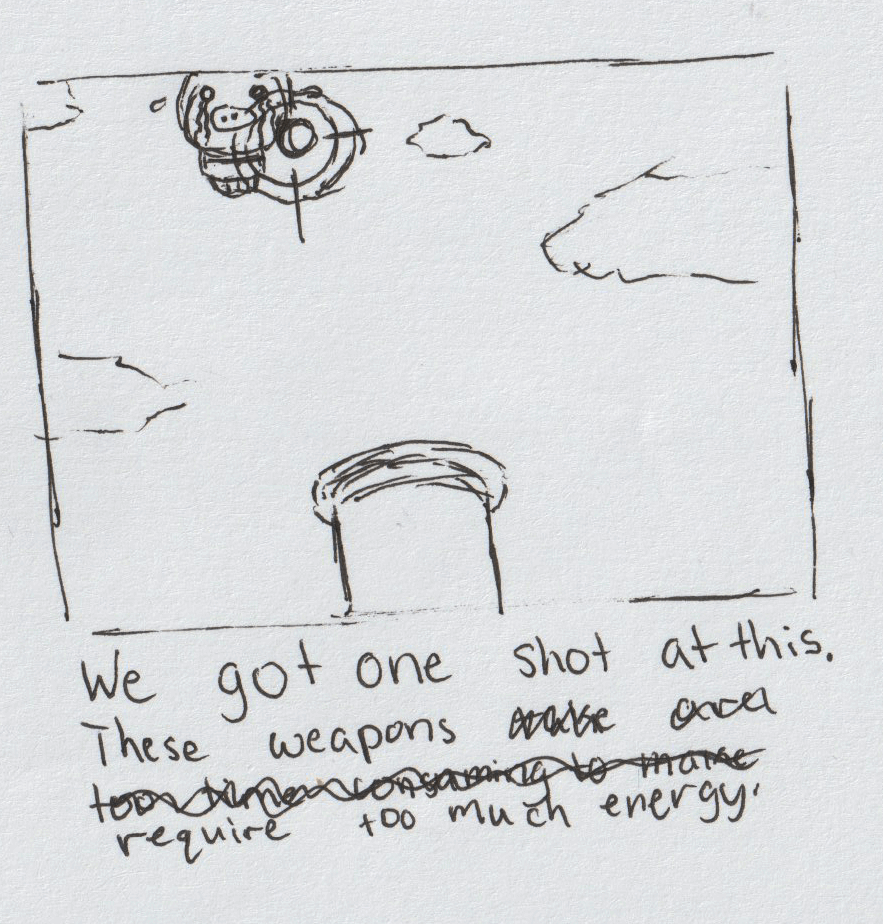 We got one shot at this.
These weapons
too time consuming to make
require too much energy.